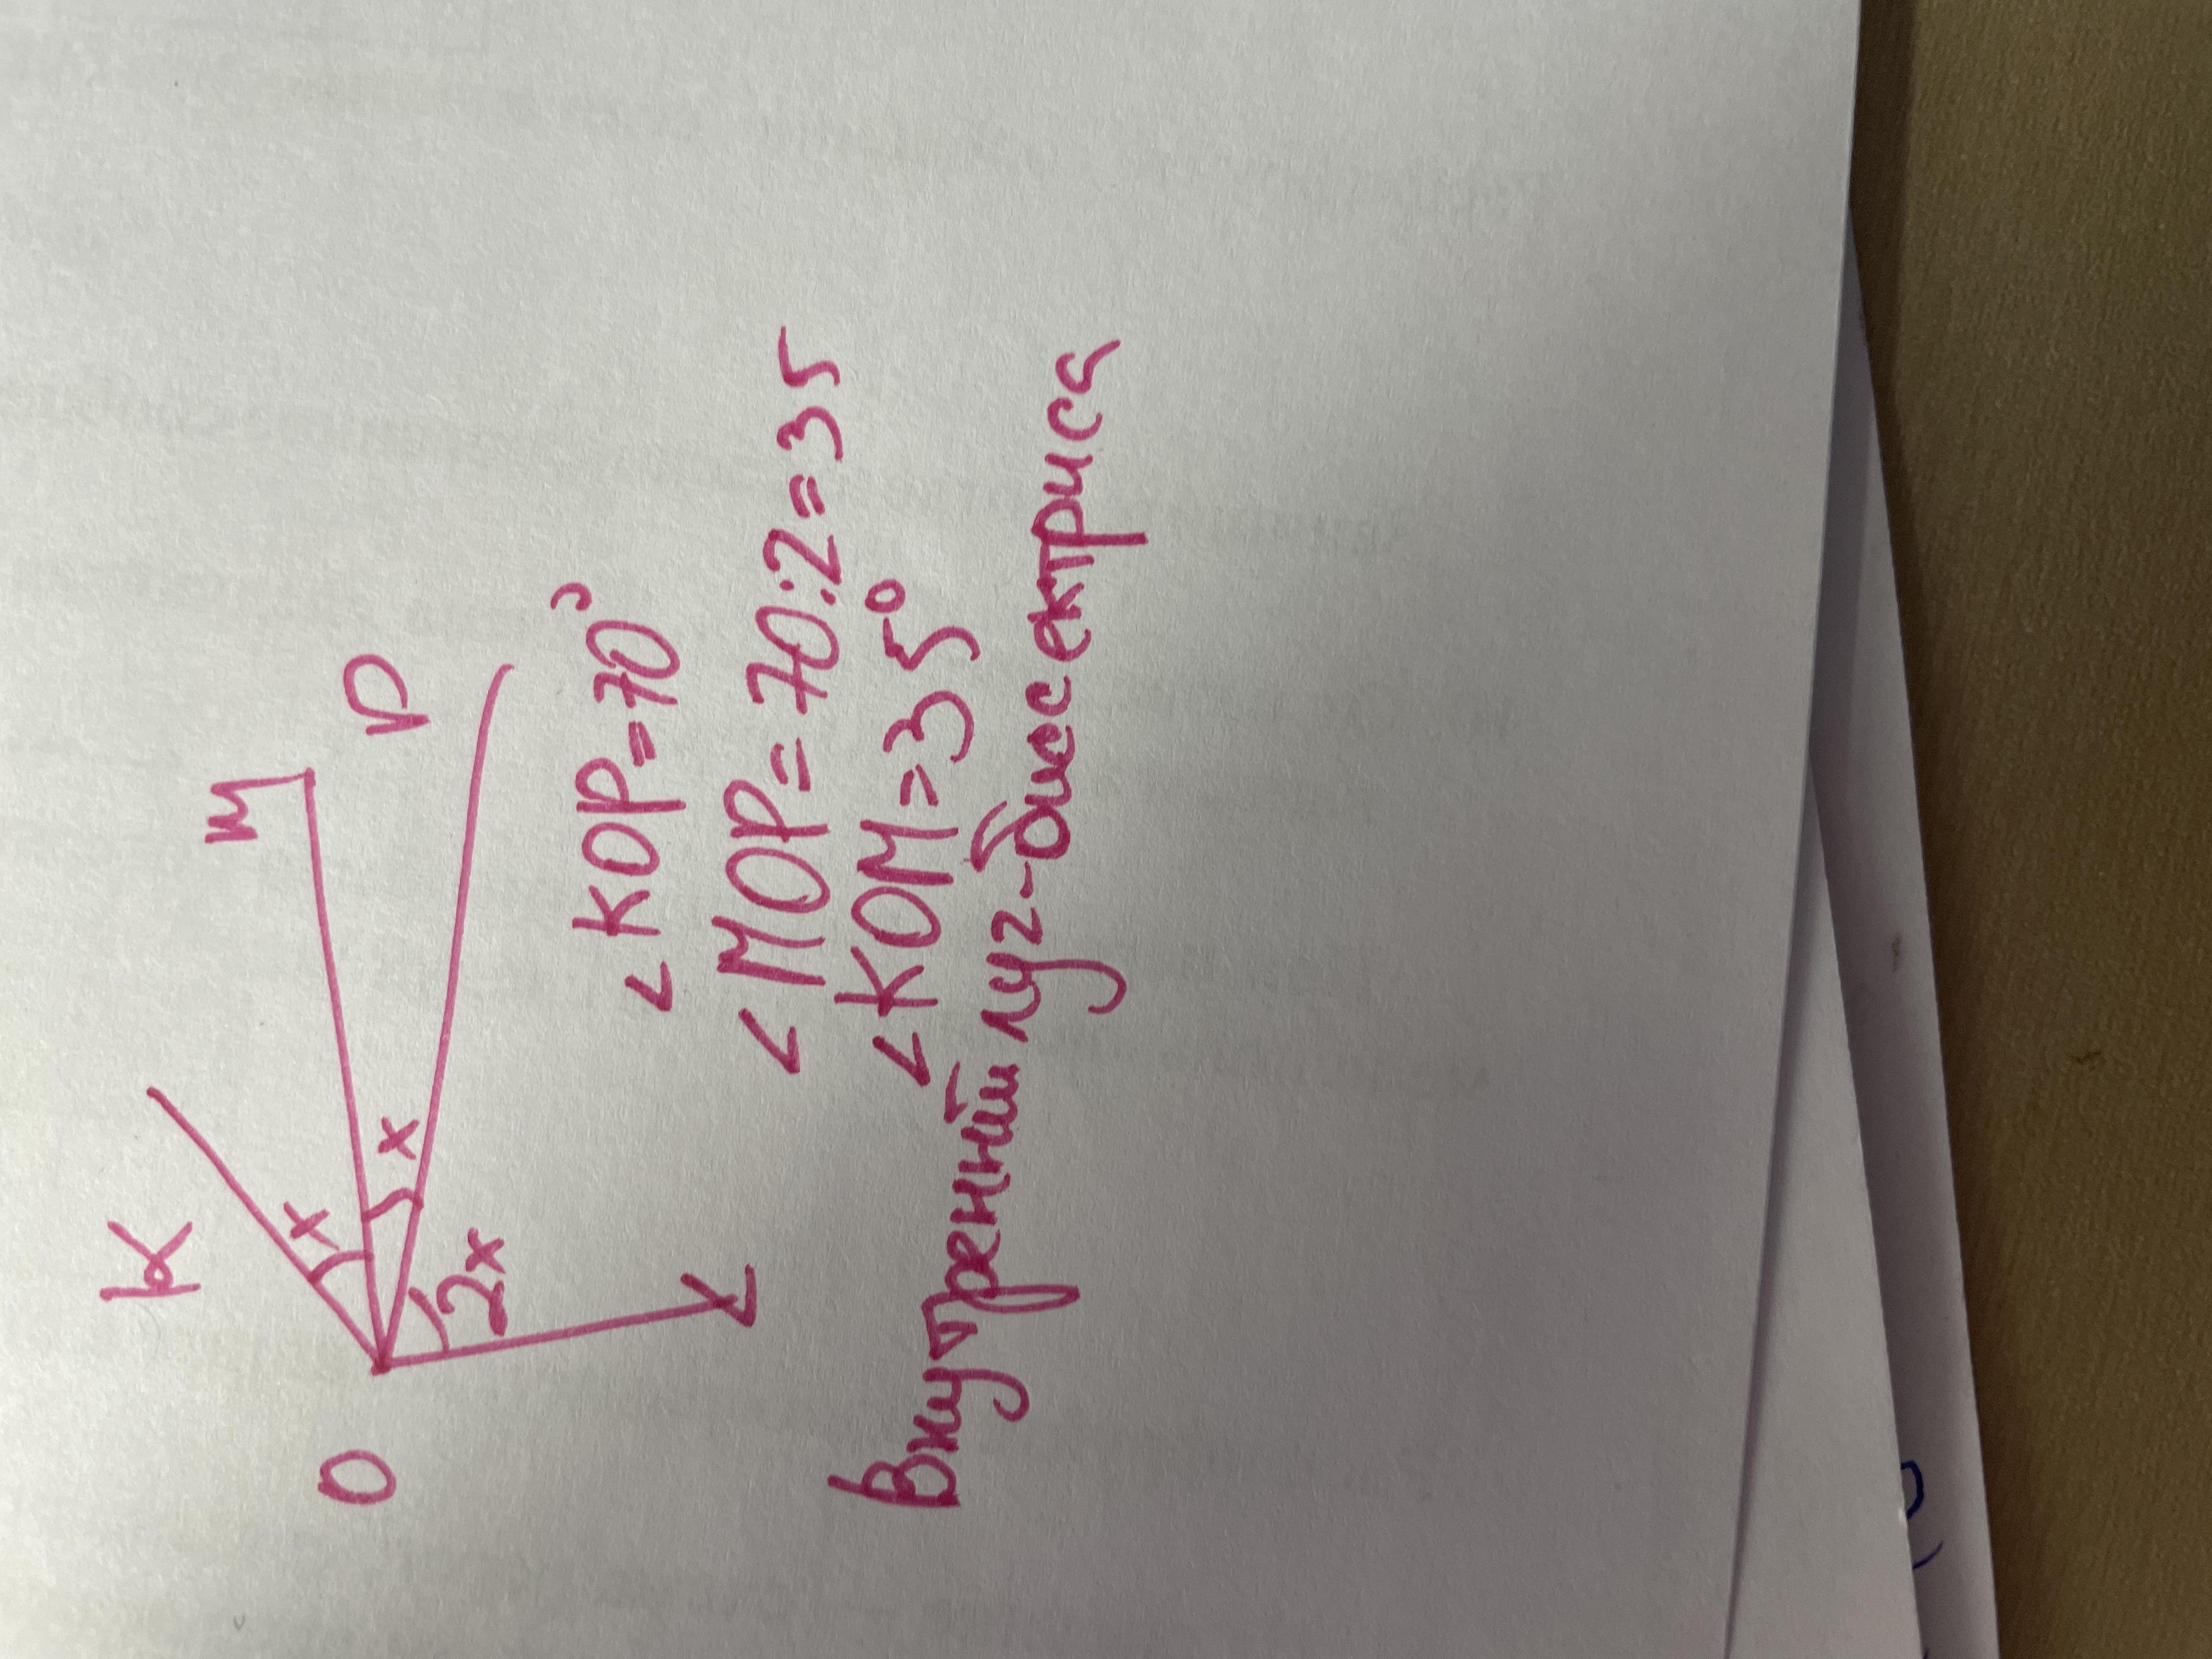 K
M
O
x
x
P
2x
L
<KOP=70°
<MOP=70:2=35
<KOM=35°
Внутренний луг-биссектриса